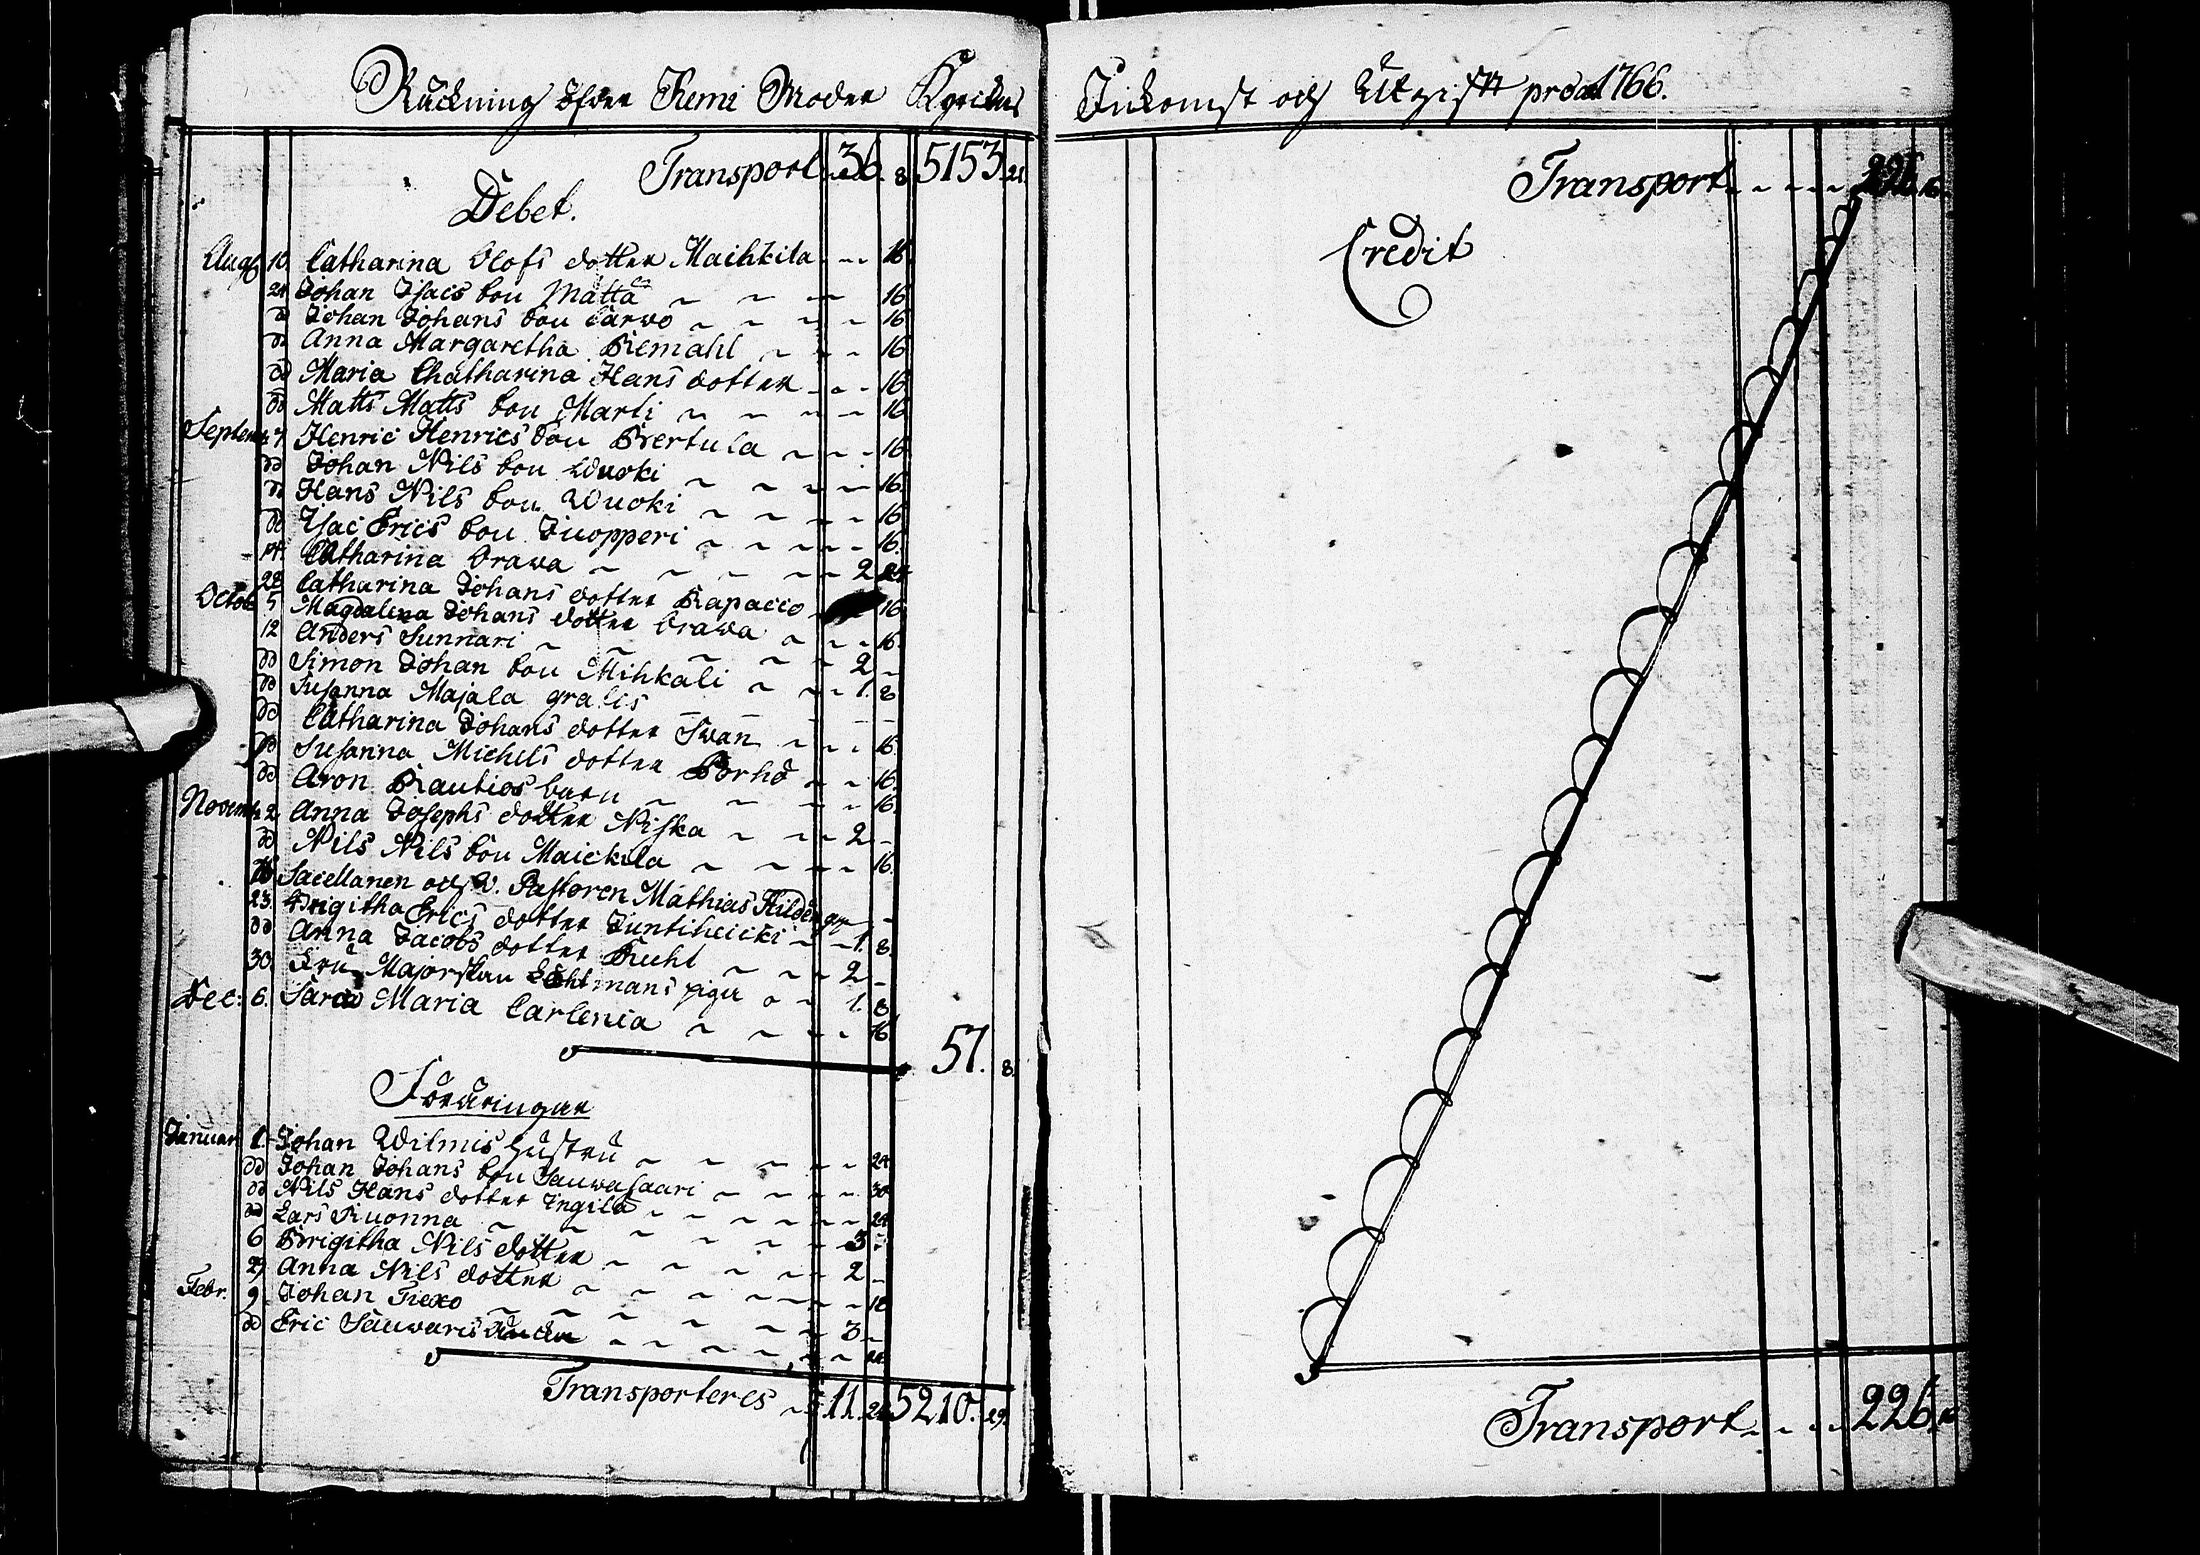 Räckning öfver Kemi Moder Kyrckas
Transport 36. 8. 5153. 21.
Debet.
Aug 10 Catharina Olofs dotter Maihkila 16
24 Johan Isacs son Matta 16
do Johan Johans son Carwo 16
do Anna Margaretha Riemahl 16
do Maria Chatharina Hans dotter 16
do Matts Matts son Marti 16
Septemb 7 Henric Henrics son Bertula 16
do Johan Nils son Wuoki 16
do Hans Nils son Wuoki 16
do Isac Erics son Juopperi 16
14 Catharina Orawa 2 24
28 Catharina Johans dotter Rapacio 16
Octob 5 Magdalena Johans dotter Orawa 16
12 Anders Sunnari 2
do Simon Johan son Mihkali 1. 8
do Susanna Majala gratis
do Catharina Johans dotter Swan 16
do Susanna Michels dotter Porho 16
do Aron Rautios barn 16
Novemb 2 Anna Josephs dotter Niska 2
do Nils Nils son Maickola 16
16 Sacellanen och V. Pastoren Mathias Hildén
23. Brigitha Erics dotter Juntiheicki 1. 8
do Anna Jacobs dotter Kuhl 2
30. Fru Majorskan Lohtmans piga 1. 8
Dec: 6. Sara Maria Carlenia 16
57. 8.
Föräringar
Januar 1. Johan Wilmis hustru 24
do Johan Johans son Sauwasaari 30
do Nils Hans dotter Ingilä 24
do Lars Kuonna 3
6 Brigitha Nils dotter 2
27 Anna Nils dotter 18
Febr. 9 Johan Tiexo 3
do Eric Sauwaris
Transporteres 11. 24 5210. 29.
Inkomst och Utgift pro ao 1766.
Transport 226. 16
Credit
Transport 226.